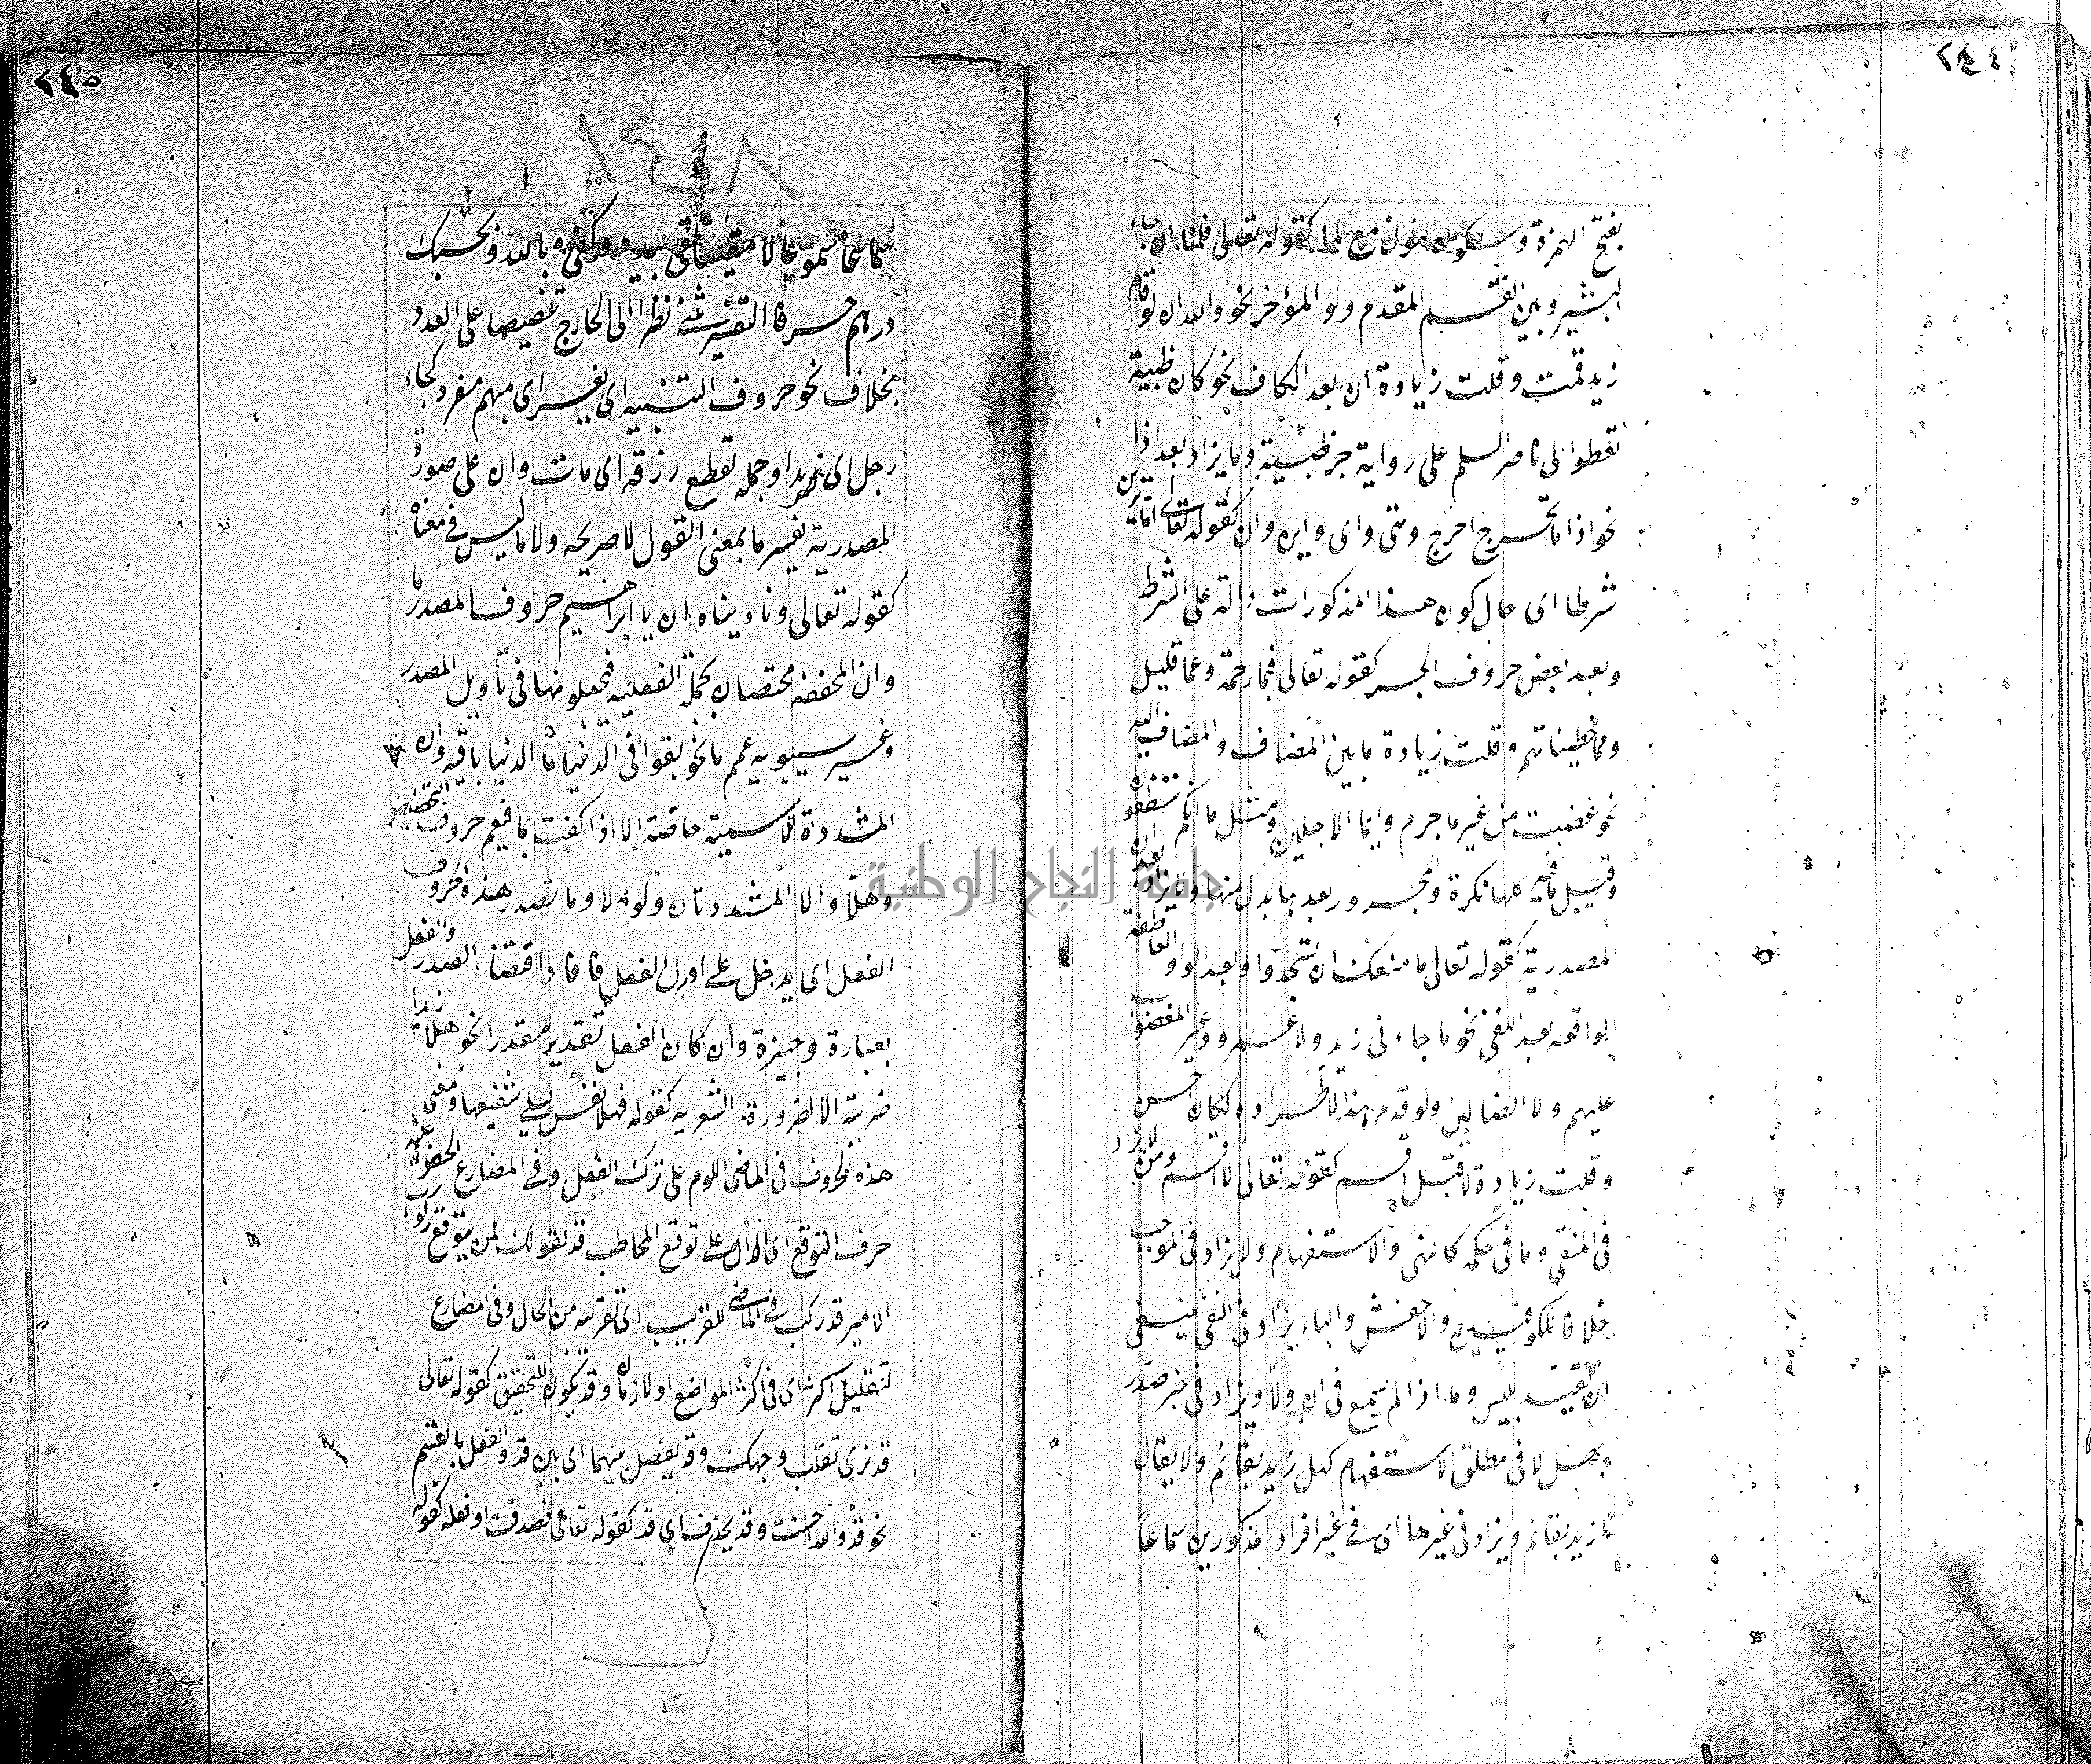 ٢٤٤
بفتح الهمزة وسكون النون مع لما كقوله تعالى فلما ان جاء
البشير وبين القسم المقدم ولو المؤخر نحو والله ان لو قام
زيد قمت وقلت زيادة ان بعد الكاف نحو كان ظبية
تعطوا الى ناضر السلم على رواية جر ظبية وما يزاد بعد اذا
نحو اذا ما تخرج اخرج ومتى واى واين وان كقوله تعالى اما ترين
شرطا اى حال كون هذا المذكورات دالة على الشرط
وبعد بعض حروف الجر كقوله تعالى فبما رحمة وعما قليل
ومما خطيئاتهم وقلت زيادة ما بين المضاف والمضاف اليه
نحو غضبت من غير ما جرم وايما الاجلين ومثل ما انكم تنطقون
وقيل ما فيه كلها نكرة ومجرور بعدها بدل منها ولا يزاد بعد ان
المصدرية كقوله تعالى ما منعك ان تتخذوا وبعد الواو العاطفة
الواقعه بعد النفى نحو ما جاءنى زيد ولا عمرو وغير المغضوب
عليهم ولا الضالين ولو قدم هذا لاطراده لكان احسن
وقلت زيادة لا قبل اقسم كقوله تعالى لا اقسم ومن يزاد
فى المنفى وما فى حكمه كالنهى والاستفهام ولا يزاد فى الموجب
خلافا للكوفيين والاخفش والباء يزاد فى النفى فينبغى
ان تقيد بليس وما اذا لم يسمع فى ان ولا ويزاد فى خبر صدر
بهل لا فى مطلق الاستفهام كهل زيد بقائم ولا يقال
ا زيد بقائم ويزاد فى غيرها اى فى غير افراد المذكورين سماعا
٢٤٥
١٤٠٨
درهم حرفا التفسير نظرا الى الخارج تنصيصا على العدد
بخلاف نحو حروف التنبيه اى يفسر اى مبهم مفرد كجاء
رجل اى زيد او جملة تقطع رزقه اى مات وان على صورة
المصدرية تفسر ما بمعنى القول لا صريحه ولا ما ليس فى معناه
كقوله تعالى وناديناه ان يا ابراهيم حروف المصدر ما
وان المخففه مختصان بجملة الفعليه فتجعلونها فى تأويل المصدر
وغير سيبويه عمم ما نحو بقوا فى الدنيا ما الدنيا باقيه وان
المشددة للاسمية خاصة الا اذا كفت بما فيعم حروف التحضيض
وهلّا والا المشددتان ولولا ولوما تصدر هذه الحروف
الفعل اى يدخل على اول الفعل فافاد اقتضا الصدر والفعل
بعبارة وجيزة وان كان الفعل تقدير مقدرا نحو هلا زيدا
ضربته الا لضرورة الشعريه كقوله فهلا نفس ليلى شفيعها ومعنى
هذه الحروف فى الماضى اللوم على ترك الفعل وفى المضارع الحض عليه
حرف التوقع اى الدال على توقع المخاطب قد لقولك لمن يتوقع ركوب
الامير قد ركب فى الماضى للتقريب اى تقربه من الحال وفى المضارع
لتقليل اكثر اى فى اكثر المواضع او لازمان وقد تكون للتحقيق كقوله تعالى
قد نرى تقلب وجهك وقد يفصل بينهما اى بين قد والفعل بالقسم
نحو قد والله احسنت وقد يحذف اى قد كقوله تعالى فصدقت او فعله كقوله
جامعة النجاح الوطنية